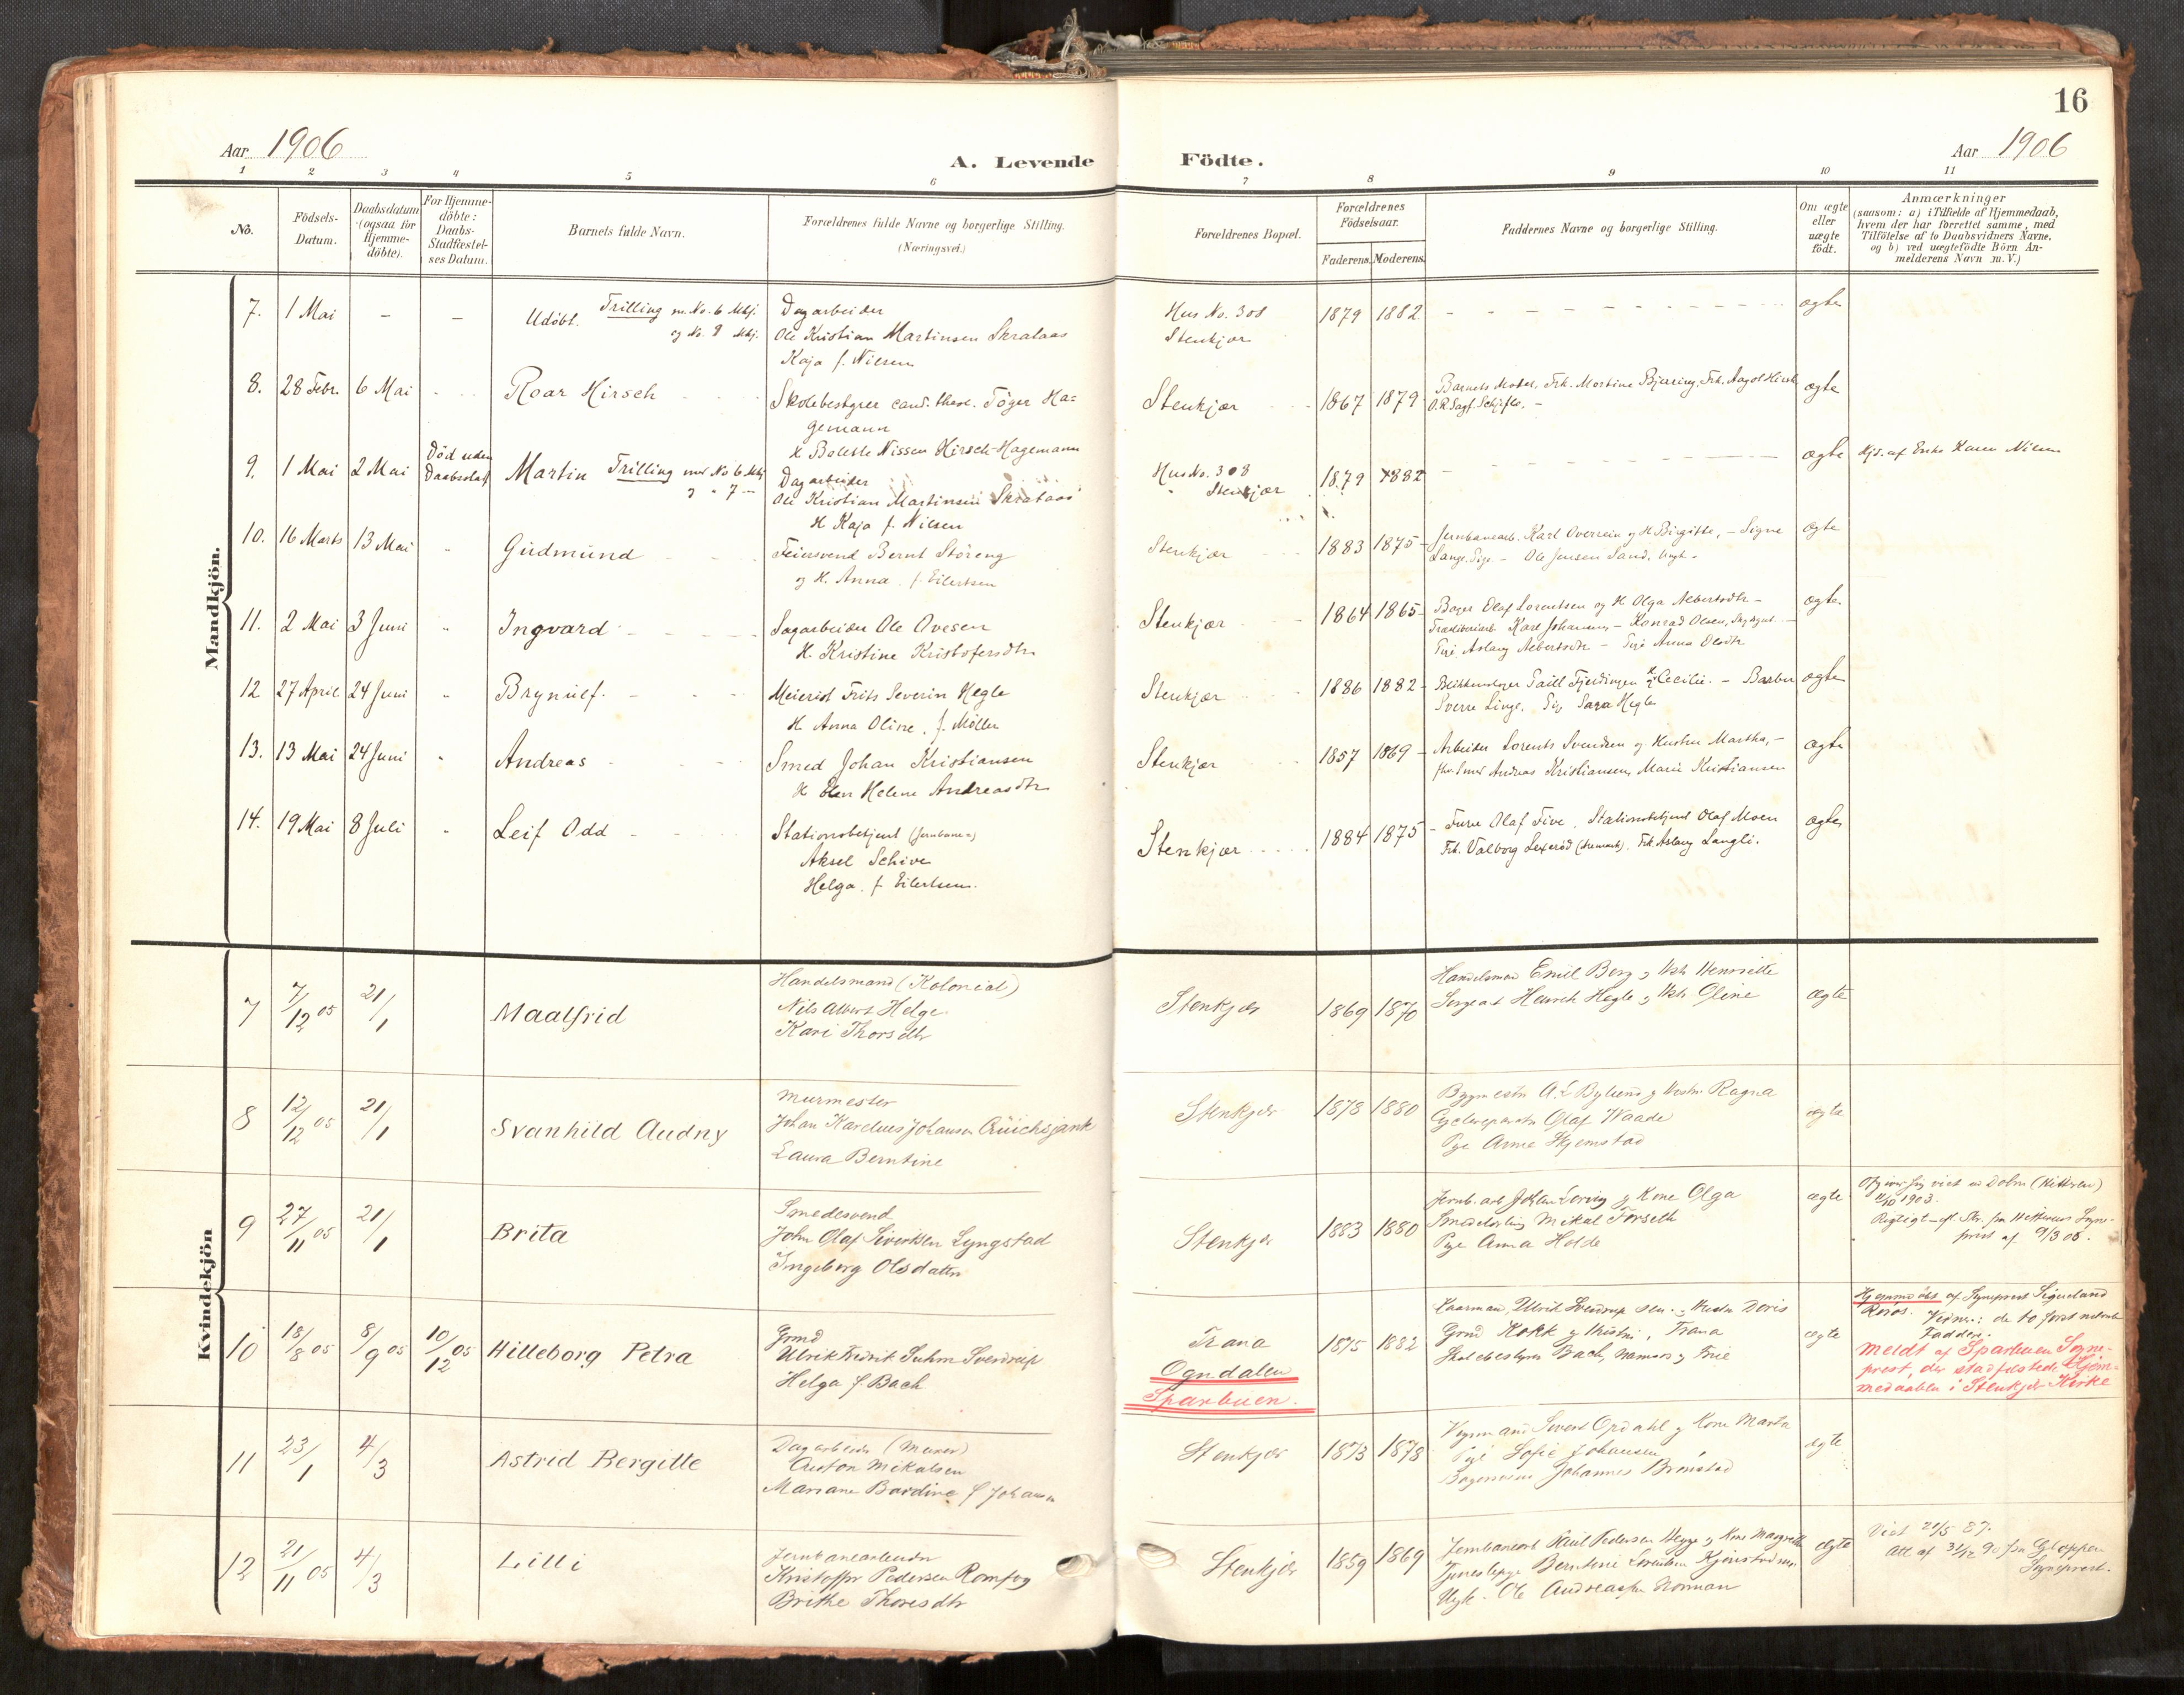 16
Aar 1906
A. Levende Födte.
Aar 1906
1 2 3 4 5 6 7 8 9 10 11
No.
Födsels-Datum.
Daabsdatum (ogsaa for Hjemme-döbte).
For Hjemme-döbte: Daabs-Stadfæstel-ses Datum.
Barnets fulde Navn.
Forældrenes fulde Navne og borgerlige Stilling.
(Næringsvei.)
Forældrenes Bopæl.
Forældrenes Födselsaar.
Faderens. Moderens.
Faddernes Navne og borgerlige Stilling.
Om ægte eller uægte födt.
Anmærkninger
(saasom: a) i Tilfælde af Hjemmedaab,
hvem der har forrettet samme, med
Tilföielse af to Daabsvidners Navne,
og b) ved uægtefödte Börn An-
melderens Navn m. V.)
Mandkjön.
7. 1 Mai - - Udöbt. Trilling m. No. 6 Mkj.
og No. 8 Mkj.
Dagarbeider
Ole Kristian Martinsen Skrataas
Kaja f. Nilsen
Hus No. 308
Stenkjær
1879 1882 ægte
8. 28 Febr. 6 Mai Roar Hirsch
Skolebestyrer cand. theol. Töger Ha=
gemann
Bolette Nissen Hirsch-Hagemann
Stenkjær 1867 1879
Barnets Moder, Frk. Martine Bjerring, Frk. Aagot Hirsch
O.R.Sagf. Schjeflo. -
ægte
9. 1 Mai 2 Mai Död uden
Daabsstadf.
Martin Trilling med No 6 Mkj
" 7 -
Dagarbeider
Ole Kristian Martinsen Skrataas
H. Kaja f. Nilsen
Hus No. 308
Stenkjær
1879 1882 ægte
Hjd. af Enke Karen Nilsen
10. 16 Marts 13 Mai " Gudmund
Feiersvend Bernt Störeng
og H. Anna f. Eilertsen
Stenkjær 1883 1875
Jernbanearb. Karl Overrein og H. Birgitte, - Signe
Lange, Pige - Ole Jensen Sand, Ungk.
ægte
11. 2 Mai 3 Juni " Ingvard
Sagarbeider Ole Ovesen
H. Kristine Kristofersdtr
Stenkjær 1864 1865
Bager Olaf Lorentsen og H. Olga Albertsdtr -
Karl Johansen, - Konrad Olsen,
Pige Aslaug Albertsdtr - Pige Anna Olsdtr
ægte
12 27 April 24 Juni " Brynulf.
Meierist Frits Severin Hegle
H. Anna Oline, f. Möller
Stenkjær 1886 1882
Paul Fjerdingen og H. Cecilie. - Barber
Sverre Linge. Pig Sara Hegle
ægte
13. 13 Mai 24 Juni " Andreas
Smed Johan Kristiansen
H. Elen Helene Andreasdtr
Stenkjær 1857 1869
Arbeider Lorents Svendsen og Hustru Martha, -
Andreas Kristiansen, Marie Kristiansen
ægte
14. 19 Mai 8 Juli " Leif Odd
Stationsbetjent (Jernbanen)
Aksel Schive
Helga f. Eilertsen.
Stenkjær 1884 1875
Olaf Five, Stationsbetjent Olaf Moen
Frk. Valborg Lexeröd, Frk. Aslaug Langli.
ægte
Kvindekjön
7 7/12 05 21/1 Maalfrid
Handelsmand (Kolonial)
Nils Albert Helge
Kari Thorsdtr
Stenkjær 1869 1870
Handelsmand Emil Berg og Hstr Henriette
Sergeant Henrik Hegle og Hstr Oline
ægte
8 12/12 05 21/1 Svanhild Audny
Murmester
Johan Karelius Johansen
Laura Berntine
Stenkjær 1878 1880
Bygmestr A. L Bylund og Hustru Ragna
Cyclereparatör Olaf Waade
Pige Arna Skjemstad
ægte
9 27/11 05 21/1 Brita
Smedesvend
John Olaf Sivertsen Lyngstad
Ingeborg Olsdatter
Stenkjær 1883 1880
Jernb. arb. Johan Lorvig og Kone Olga
Smedelærling Mikal Forseth
Pige Anna Holde
ægte
Opgiver sig viet i Dolm (Hitteren)
11/10 1903.
Rigtigt - efl. Skr. fra Hitterens Sogne-
prest af 9/3 06.
10 18/8 05 8/9 05 10/12 05 Hilleborg Petra
Grmd
Ulrik Fredrik Suhm Sverdrup
Helga f. Bach
Trana
Ogndalen
Sparbuen.
1875 1882
Ulrik Sverdrup sen. - Hustru Doris
Grmd Kokk og Hustru, Trana
Skolebestyrer Bach, Namsos og Frue
ægte
Hjemmedöbt af Sognprest Sigueland
Röros. Vidner: de to först nævnte
Faddere.
Meldt af Sparbuen Sogne-
prest, der stadfæstede Hjem-
medaaben i Stenkjær Kirke
11 23/1 4/3 Astrid Bergitte
Dagarbeider (Murer)
Anton Mikalsen
Mariane Bardine f Johansen
Stenkjær 1873 1878
Vognmand Sivert Opdahl og Kone Marta
Pige Sofie Johansen
Bagersvend Johannes Brönstad
ægte
12 21/11 05 4/3 Lilli
Jernbanearbeider
Kristoffer Pedersen Romfog
Brithe Thoresdtr
Stenkjær 1859 1869
Jernbanearb Paul Pedersen Hegge og Kone Margrethe
Tjenestepige Berntine
Ungk. Ole Andreassen Norman
ægte
Viet 21/5 87.
Att af 31/12 90 fra Gloppen
Sogneprest.